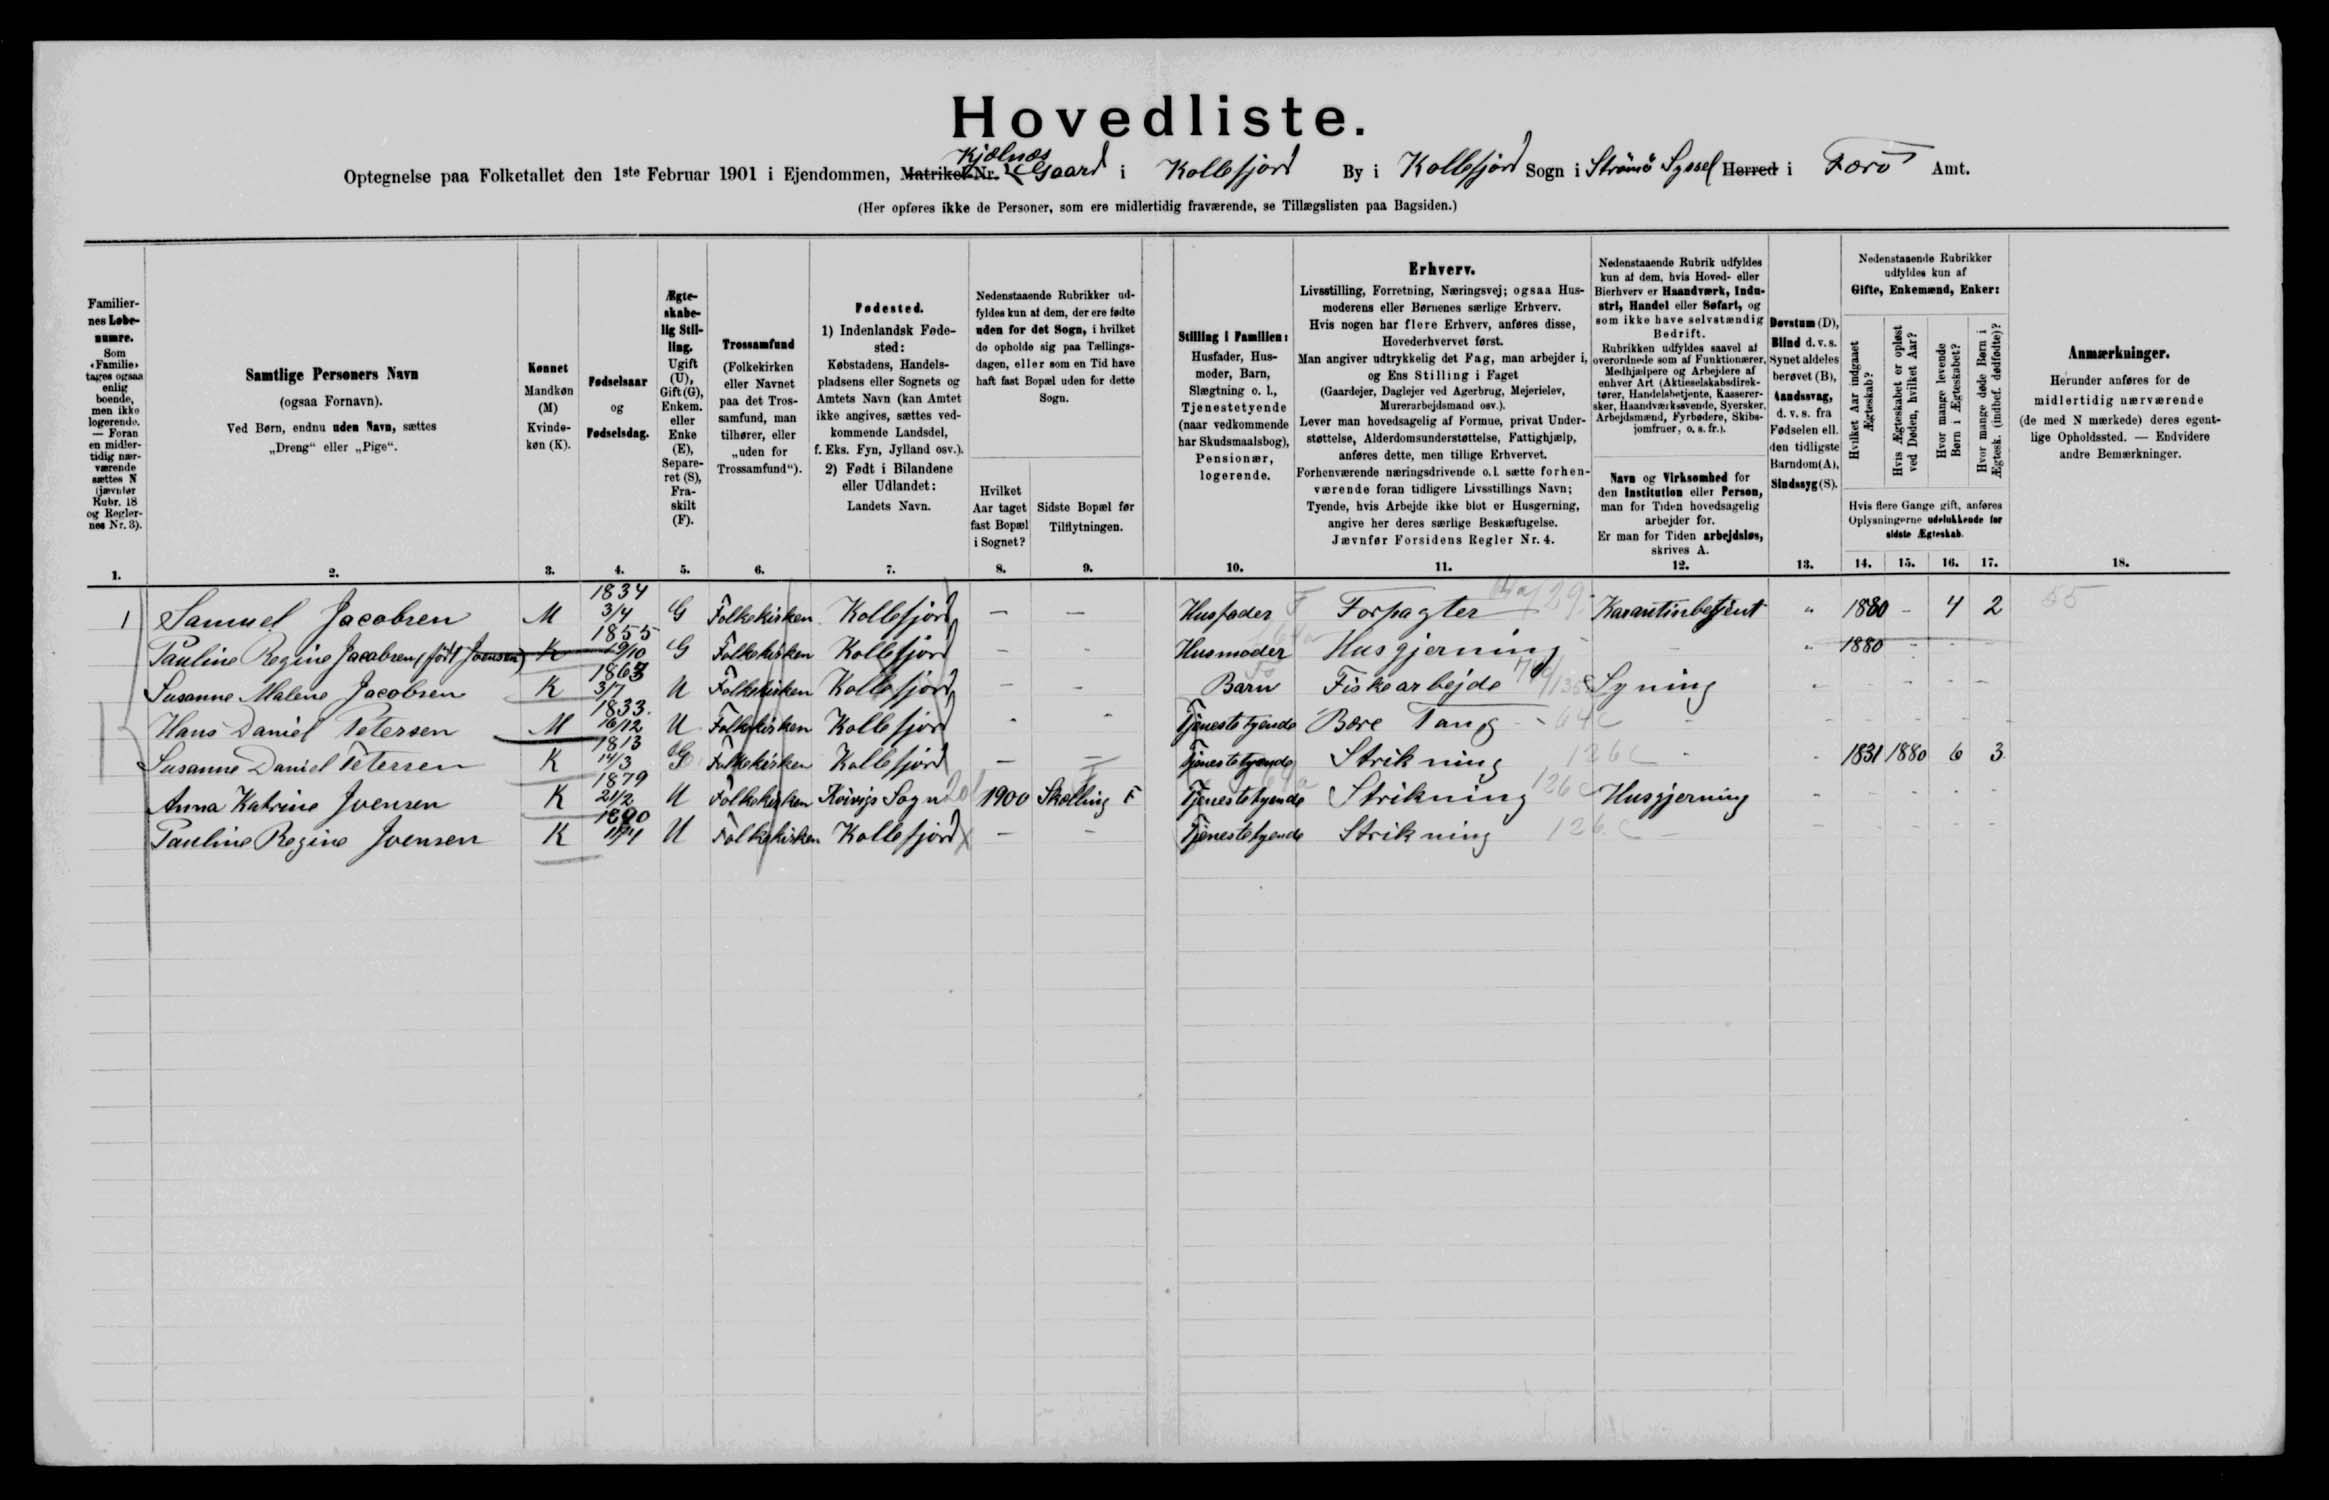 Hovedliste.
Optegnelse paa Folketallet den 1ste Februar 1901 i Ejendommen, Matrikel-Nr. Kjølnæs Gaard i Kollefjord By i Kollefjord Sogn i Strömö Syssel Herred i Færö Amt.
(Her opføres ikke de Personer, som ere midlertidig fraværende, se Tillægslisten paa Bagsiden.)
Familiernes Løbenumre.
Som «Familie» tages ogsaa enlig boende, men ikke logerende. — Foran en midlertidig nærværende sættes N (jævnfør Rubr. 18 og Reglernes Nr. 3).
Samtlige Personers Navn
(ogsaa Fornavn).
Ved Børn, endnu uden Navn, sættes „Dreng“ eller „Pige“.
Kønnet
Mandkøn (M)
Kvindekøn (K).
Fødselsaar og Fødselsdag.
Ægteskabelig Stilling.
Ugift (U), Gift (G), Enkem. eller Enke (E), Separeret (S), Fraskilt (F).
Trossamfund
(Folkekirken eller Navnet paa det Trossamfund, man tilhører, eller „uden for Trossamfund“).
Fødested.
1) Indenlandsk Fødested:
Købstadens, Handelspladsens eller Sognets og Amtets Navn (kan Amtet ikke angives, sættes vedkommende Landsdel, f. Eks. Fyn, Jylland osv.).
2) Født i Bilandene eller Udlandet:
Landets Navn.
Nedenstaaende Rubrikker udfyldes kun af dem, der ere fødte uden for det Sogn, i hvilket de opholde sig paa Tællingsdagen, eller som en Tid have haft fast Bopæl uden for dette Sogn.
Hvilket Aar taget fast Bopæl i Sognet?
Sidste Bopæl før Tilflytningen.
Stilling i Familien:
Husfader, Husmoder, Barn, Slægtning o. l., Tjenestetyende (naar vedkommende har Skudsmaalsbog), Pensionær, logerende.
Erhverv.
Livsstilling, Forretning, Næringsvej; ogsaa Husmoderens eller Børnenes særlige Erhverv.
Hvis nogen har flere Erhverv, anføres disse, Hovederhvervet først.
Man angiver udtrykkelig det Fag, man arbejder i, og Ens Stilling i Faget
(Gaardejer, Daglejer ved Agerbrug, Mejerielev, Murerarbejdsmand osv.).
Lever man hovedsagelig af Formue, privat Understøttelse, Alderdomsunderstøttelse, Fattighjælp, anføres dette, men tillige Erhvervet.
Forhenværende næringsdrivende o. l. sætte forhenværende foran tidligere Livsstillings Navn;
Tyende, hvis Arbejde ikke blot er Husgerning, angive her deres særlige Beskæftigelse.
Jævnfør Forsidens Regler Nr. 4.
Nedenstaaende Rubrik udfyldes kun af dem, hvis Hoved- eller Bierhverv er Haandværk, Industri, Handel eller Søfart, og som ikke have selvstændig Bedrift.
Rubrikken udfyldes saavel af overordnede som af Funktionærer, Medhjælpere og Arbejdere af enhver Art (Aktieselskabsdirektører, Handelsbetjente, Kasserersker, Haandværkssvende, Syersker, Arbejdsmænd, Fyrbødere, Skibsjomfruer, o. s. fr.).
Navn og Virksomhed for den Institution eller Person, man for Tiden hovedsagelig arbejder for.
Er man for Tiden arbejdsløs, skrives A.
Døvstum (D), Blind d. v. s. Synet aldeles berøvet (B), Aandssvag, d. v. s. fra Fødselen ell. den tidligste Barndom (A), Sindssyg (S).
Nedenstaaende Rubrikker udfyldes kun af Gifte, Enkemænd, Enker:
Hvilket Aar indgaaet Ægteskab?
Hvis Ægteskabet er opløst ved Døden, hvilket Aar?
Hvor mange levende Børn i Ægteskabet?
Hvor mange døde Børn i Ægtesk. (indbef. dødfødte)?
Hvis flere Gange gift, anføres Oplysningerne udelukkende for sidste Ægteskab.
Anmærkninger.
Herunder anføres for de midlertidig nærværende (de med N mærkede) deres egentlige Opholdssted. — Endvidere andre Bemærkninger.
1. 2. 3. 4. 5. 6. 7. 8. 9. 10. 11. 12. 13. 14. 15. 16. 17. 18.
1 Samuel Jacobsen M 1834 3/4 G Folkekirken Kollefjord — — Husfader F Forpagter 29 Karantinbetjent " 1880 - 4 2 55
Pauline Regine Jacobsen (født Joensen) K 1855 19/10 G Folkekirken Kollefjord - - Husmoder Husgjerning - " 1880 - - -
Susanne Malene Jacobsen K 3/7 U Folkekirken Kollefjord - - Barn Fiskearbejde Syning - - - - -
Hans Daniel Petersen M 1833. 16/12 U Folkekirken Kollefjord - - Tjenestetyende Bære Tang 64c - - - - - -
Susanne Daniel Petersen K 1813 14/3 G Folkekirken Kollefjord — — Tjenestetyende Strikning 126c - - 1831 1880 6 3
Anna Katrine Joensen K 1879 21/2 U Folkekirken Kvivigs Sogn 1900 Skælling F Tjenestetyende Strikning 126c Husgjerning - - - - -
Pauline Regine Joensen K U Folkekirken Kollefjord — - Tjenestetyende Strikning 126c - - - - - -